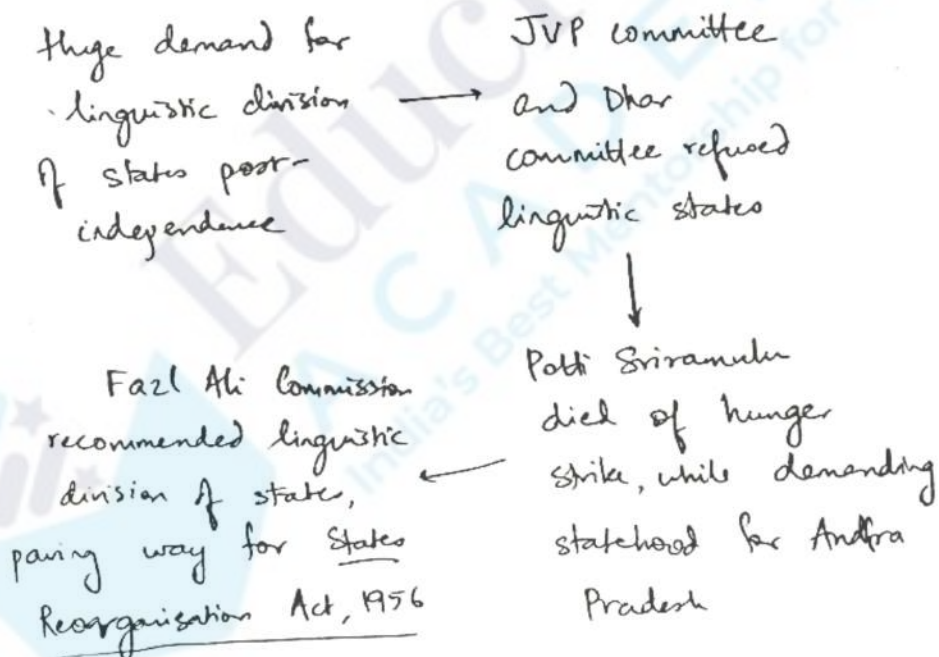 Huge demand for
linguistic division
of states post-
independence
JVP committee
and Dhar
committee refused
linguistic states
Potti Sriramulu
died of hunger
strike, while demanding
statehood for Andhra
Pradesh
Fazl Ali Commission
recommended linguistic
division of states,
paving way for States
Reorganisation Act, 1956
Educ
ACADE
India's Best Mentorship for